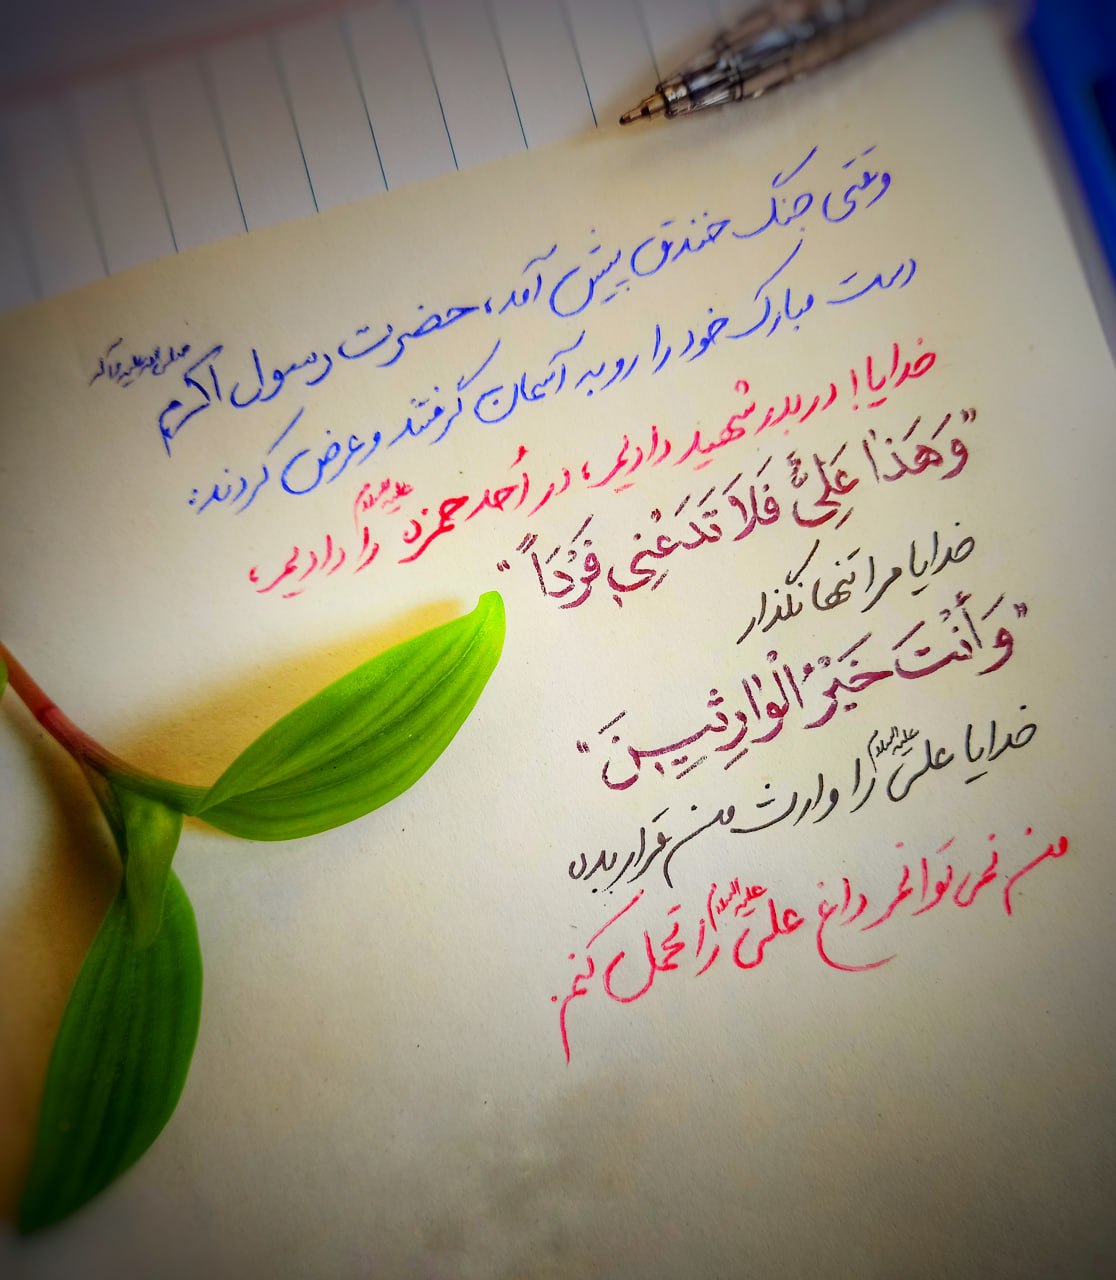 وقتی جنگ خندق پیش آمد، حضرت رسول اکرم صلی الله علیه و آله
دست مبارک خود را رو به آسمان گرفتند و عرض کردند:
خدایا! در بدر شهید دادیم، در اُحد حمزه علیه السلام را دادیم،
"وَهَذا عَلِیٌّ فَلاَ تَدَعْنِي فَرْدَاً"
خدایا مرا تنها نگذار
"وَأَنْتَ خَيْرُ الْوارِثِينَ"
خدایا علی علیه السلام را وارث من قرار بده
من نمی توانم داغ علی علیه السلام را تحمل کنم.